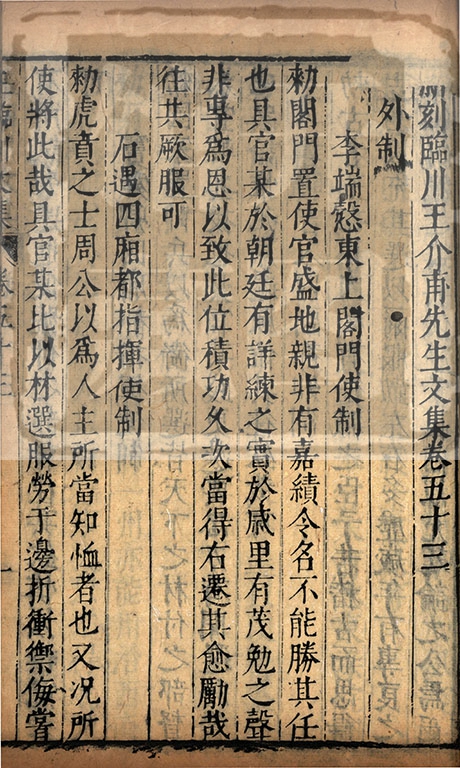 新刻臨川王介甫先生文集卷五十三
外制
李端愨東上閤門使制
勑閤門置使官盛地親非有嘉績令名不能勝其任
也具官某於朝廷有詳練之實於戚里有茂勉之聲
非專爲恩以致此位積功久次當得右遷其愈勵哉
往共厥服可
石遇四廂都指揮使制
勑虎賁之士周公以爲人主所當知恤者也又况所
使將此哉具官某比以材選服勞于邊折衝禦侮嘗